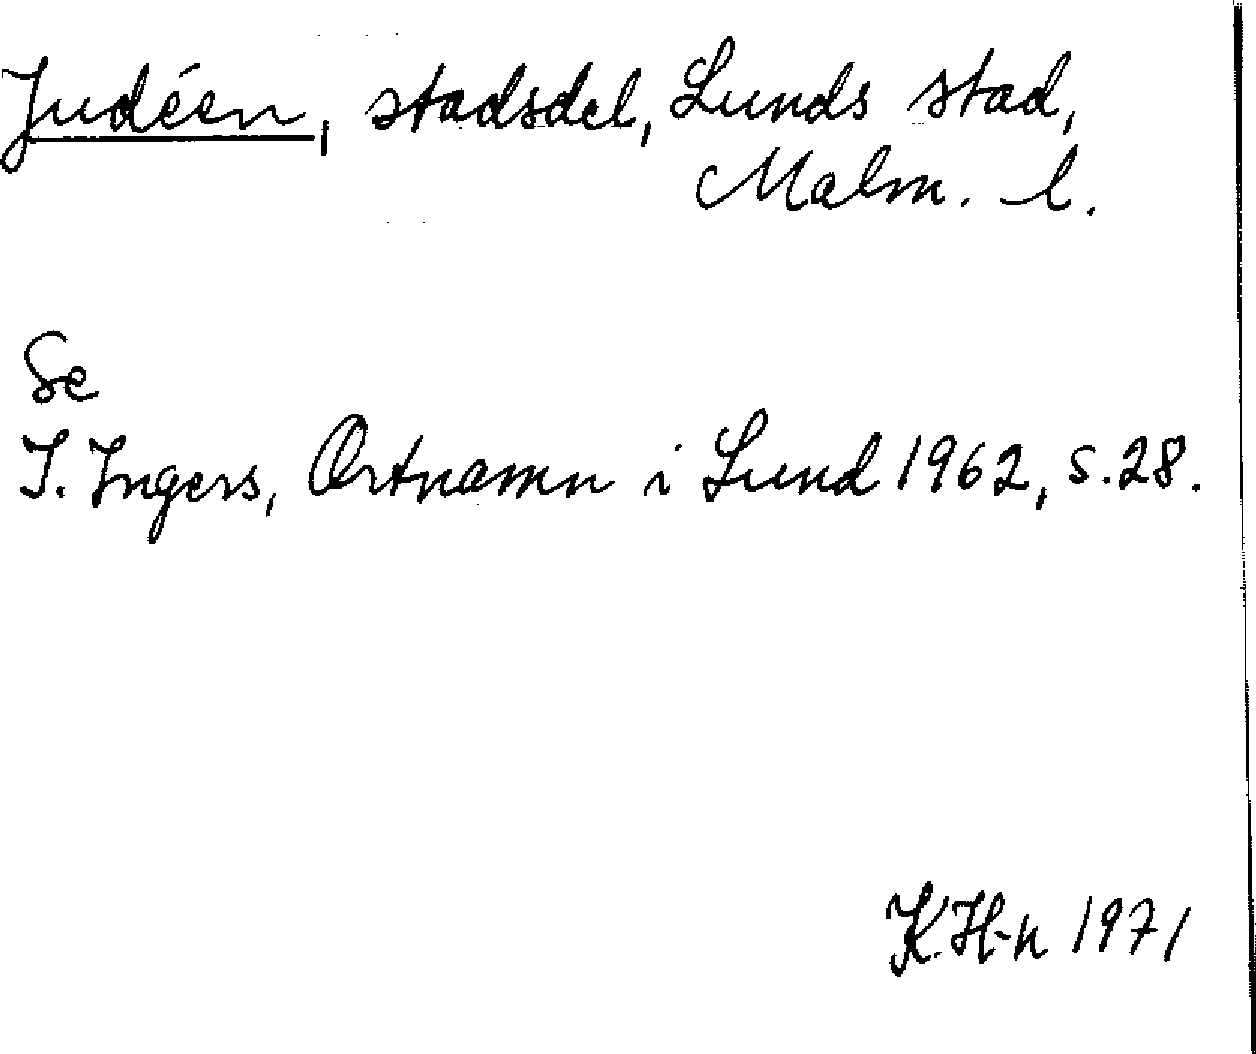 Judéen, stadsdel, Lunds stad,
Malm. l.
Se
I. Ingers, Ortnamn i Lund 1962, s. 28.
K. H-n 1971